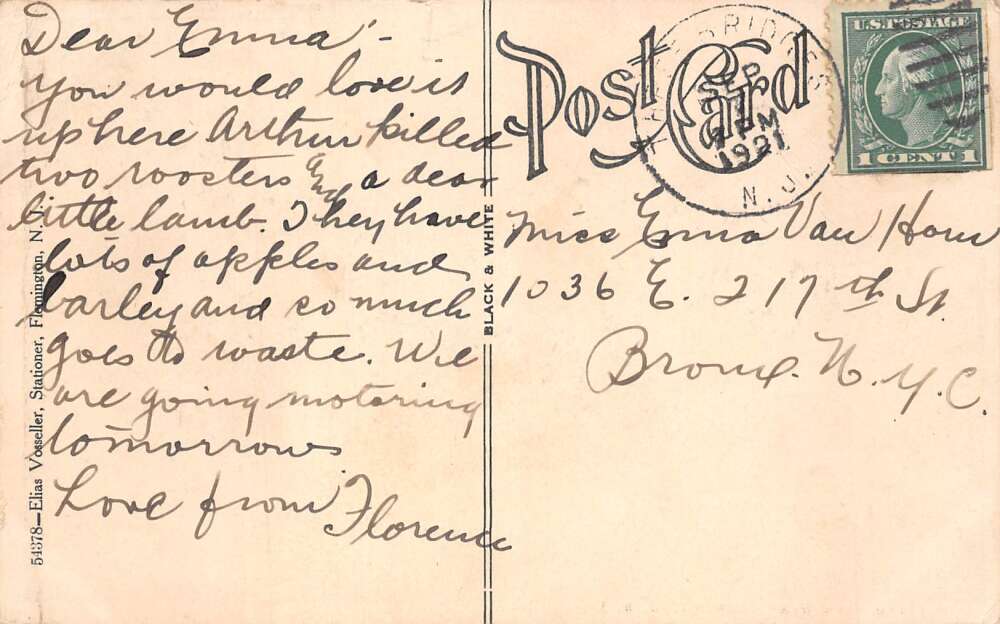 Dear Emma -
You would love it
up here Arthur killed
two roosters and a dear
little lamb. They have
lots of apples and
barley and so much
goes to waste. We
are going motoring
tomorrow
Love from Florence
54378—Elias Vosseller, Stationer, Flemington, N. J.
BLACK & WHITE
Post Card
THREE BRIDGES
SEP
PM
1921
N. J.
U.S. POSTAGE
1 CENT 1
Miss Emma Van Horn
1036 E. 217th St.
Bronx. N.Y.C.